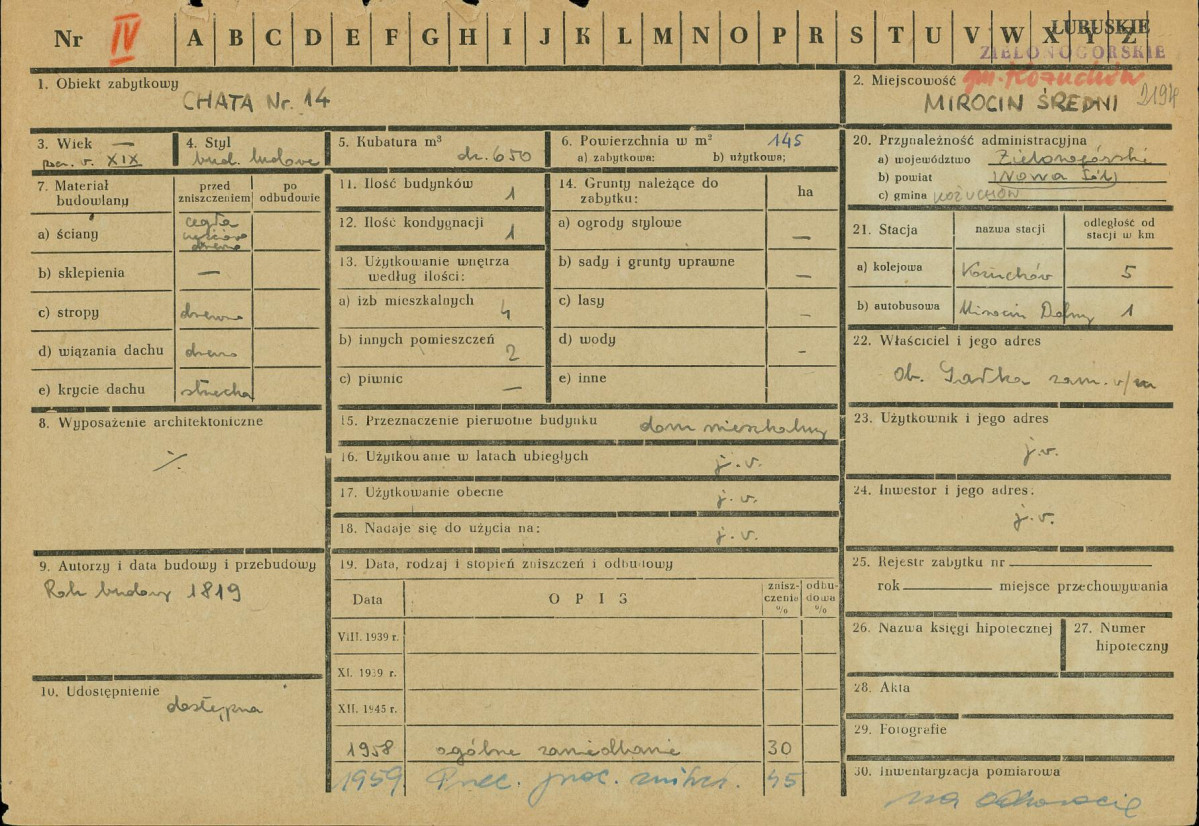 Nr IV A B C D E F G H I J K L M N O P R S T U V W X Y Z
LUBUSKIE
ZIELONOGÓRSKIE
1. Obiekt zabytkowy
CHATA Nr. 14
2. Miejscowość gm. Kożuchów
MIROCIN ŚREDNI 2194
3. Wiek —
pocz. w. XIX
4. Styl
bud. ludowe
5. Kubatura m³
ok. 650
6. Powierzchnia w m² 145
a) zabytkowa: b) użytkowa;
7. Materiał budowlany
przed zniszczeniem
po odbudowie
a) ściany
cegła
częściowo
drewno
b) sklepienia —
c) stropy drewno
d) wiązania dachu drewno
e) krycie dachu strzecha
8. Wyposażenie architektoniczne
·/.
9. Autorzy i data budowy i przebudowy
Rok budowy 1819
10. Udostępnienie
dostępna
11. Ilość budynków 1
12. Ilość kondygnacji 1
13. Użytkowanie wnętrza
według ilości:
a) izb mieszkalnych 4
b) innych pomieszczeń 2
c) piwnic —
14. Grunty należące do
zabytku: ha
a) ogrody stylowe —
b) sady i grunty uprawne —
c) lasy –
d) wody -
e) inne
15. Przeznaczenie pierwotne budynku dom mieszkalny
16. Użytkowanie w latach ubiegłych j. w.
17. Użytkowanie obecne j. w.
18. Nadaje się do użycia na: j. w.
19. Data, rodzaj i stopień zniszczeń i odbudowy
Data OPIS zniszczenia % odbudowa %
VIII. 1939 r.
XI. 1939 r.
XII. 1945 r.
1958 ogólne zaniedbanie 30
1959 45
20. Przynależność administracyjna
a) województwo Zielonogórskie
b) powiat (Nowa Sól)
c) gmina KOŻUCHÓW
21. Stacja nazwa stacji odległość od stacji w km
a) kolejowa Kożuchów 5
b) autobusowa Mirocin Dolny 1
22. Właściciel i jego adres
Ob. zam. w/m
23. Użytkownik i jego adres
j. w.
24. Inwestor i jego adres:
j. w.
25. Rejestr zabytku nr
rok miejsce przechowywania
26. Nazwa księgi hipotecznej
27. Numer
hipoteczny
28. Akta
29. Fotografie
30. Inwentaryzacja pomiarowa
na odwrocie